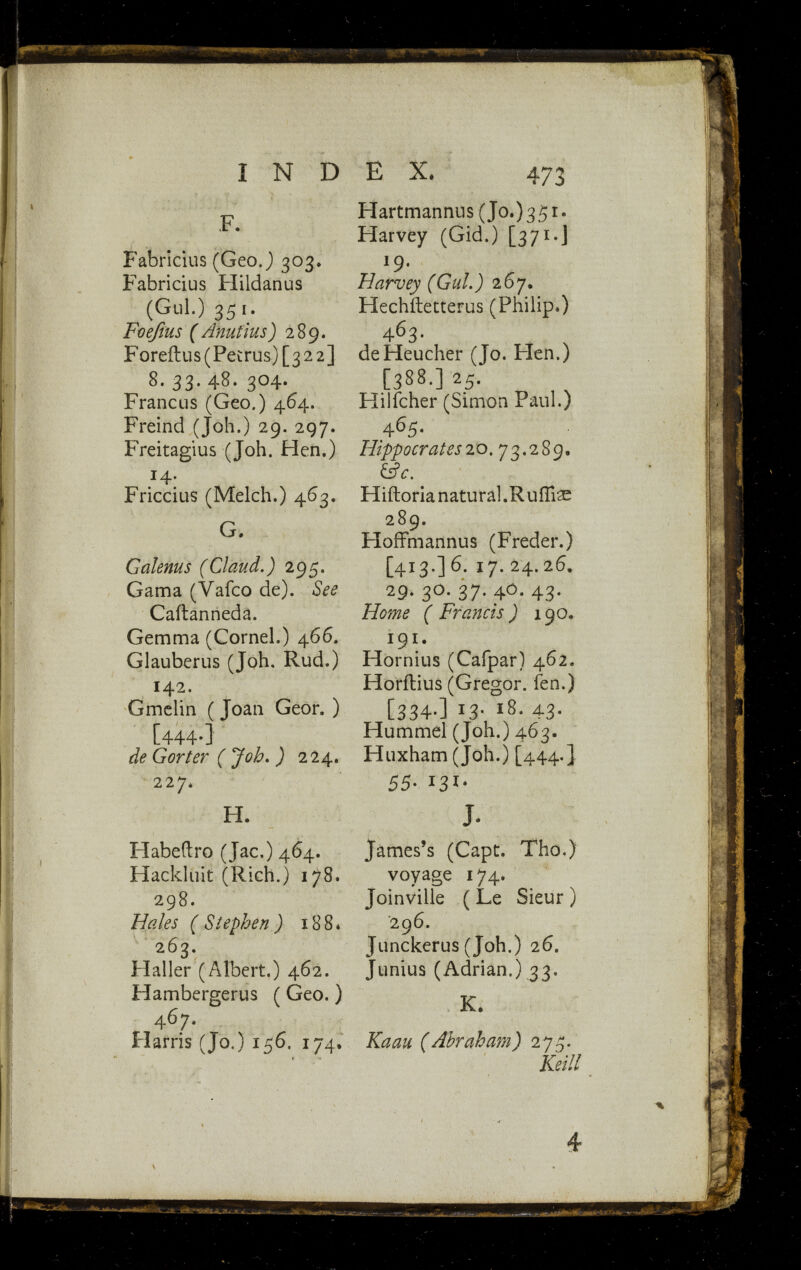 INDEX. 473
F.
Fabricius (Geo.) 303.
Fabricius Hildanus
(Gul.) 351.
Foeſius (Anutius) 289.
Foreſtus (Petrus) [322]
8. 33. 48. 304.
Francus (Geo.) 464.
Freind (Joh.) 29. 297.
Freitagius (Joh. Hen.)
14.
Friccius (Melch.) 463.
G.
Galenus (Claud.) 295.
Gama (Vaſco de). See
Caſtanneda.
Gemma (Cornel.) 466.
Glauberus (Joh. Rud.)
142.
Gmelin (Joan Geor.)
[444.]
de Gorter (Joh.) 224.
227.
H.
Habeſtro (Jac.) 464.
Hackluit (Rich.) 178.
298.
Hales (Stephen) 188.
263.
Haller (Albert.) 462.
Hambergerus (Geo.)
467.
Harris (Jo.) 156. 174.
Hartmannus (Jo.) 351.
Harvey (Gid.) [371.]
19.
Harvey (Gul.) 267.
Hechſtetterus (Philip.)
463.
de Heucher (Jo. Hen.)
[388.] 25.
Hilſcher (Simon Paul.)
465.
Hippocrates 20. 73. 289.
&c.
Hiſtoria natural. Ruſſiæ
289.
Hoffmannus (Freder.)
[413.] 6. 17. 24. 26.
29. 30. 37. 40. 43.
Home (Francis) 190.
191.
Hornius (Caſpar) 462.
Horſtius (Gregor. ſen.)
[334.] 13. 18. 43.
Hummel (Joh.) 463.
Huxham (Joh.) [444.]
55. 131.
J.
James's (Capt. Tho.)
voyage 174.
Joinville (Le Sieur)
296.
Junckerus (Joh.) 26.
Junius (Adrian.) 33.
K.
Kaau (Abraham) 275.
Keill
4